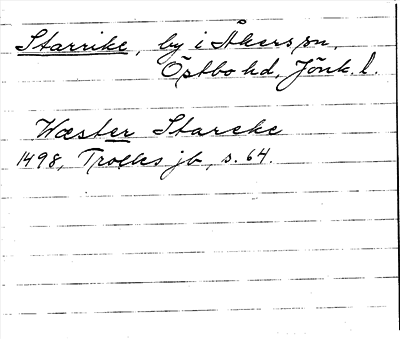 Starrike, by i Åkers sn,
Östbo hd, Jönk. l.
Wæster Stareke
1498, Trolles jb, s. 64.